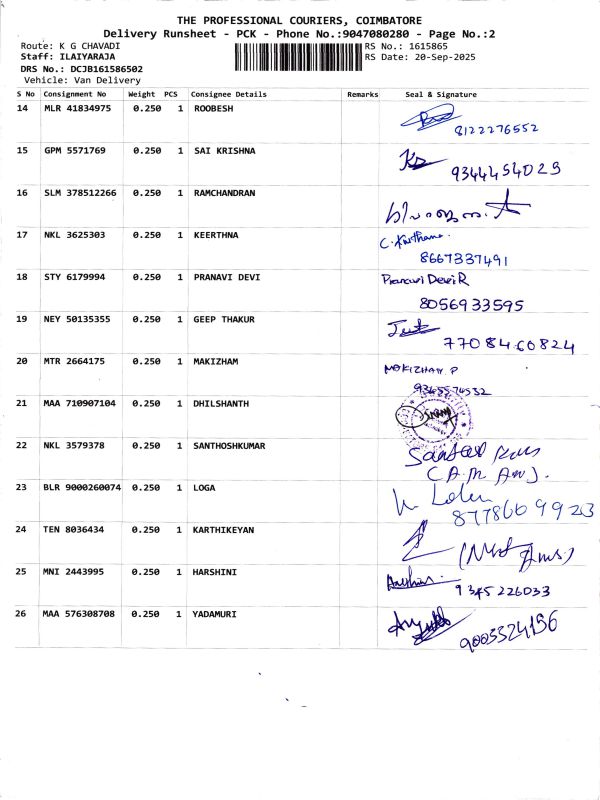 THE PROFESSIONAL COURIERS, COIMBATORE
Delivery Runsheet - PCK - Phone No.:9047080280 - Page No.:2
Route: K G CHAVADI
RS No.: 1615865
Staff: ILAIYARAJA
RS Date: 20-Sep-2025
DRS No.: DCJB161586502
Vehicle: Van Delivery
S No Consignment No Weight PCS Consignee Details Remarks Seal & Signature
14 MLR 41834975 0.250 1 ROOBESH
8122276552
15 GPM 5571769 0.250 1 SAI KRISHNA
9344454029
16 SLM 378512266 0.250 1 RAMCHANDRAN
17 NKL 3625303 0.250 1 KEERTHNA
8667337491
18 STY 6179994 0.250 1 PRANAVI DEVI Pranavi Devi R
8056933595
19 NEY 50135355 0.250 1 GEEP THAKUR
7708460824
20 MTR 2664175 0.250 1 MAKIZHAM MAKIZHAM P
21 MAA 710907104 0.250 1 DHILSHANTH
22 NKL 3579378 0.250 1 SANTHOSHKUMAR
23 BLR 9000260074 0.250 1 LOGA
24 TEN 8036434 0.250 1 KARTHIKEYAN
25 MNI 2443995 0.250 1 HARSHINI
9345226033
26 MAA 576308708 0.250 1 YADAMURI